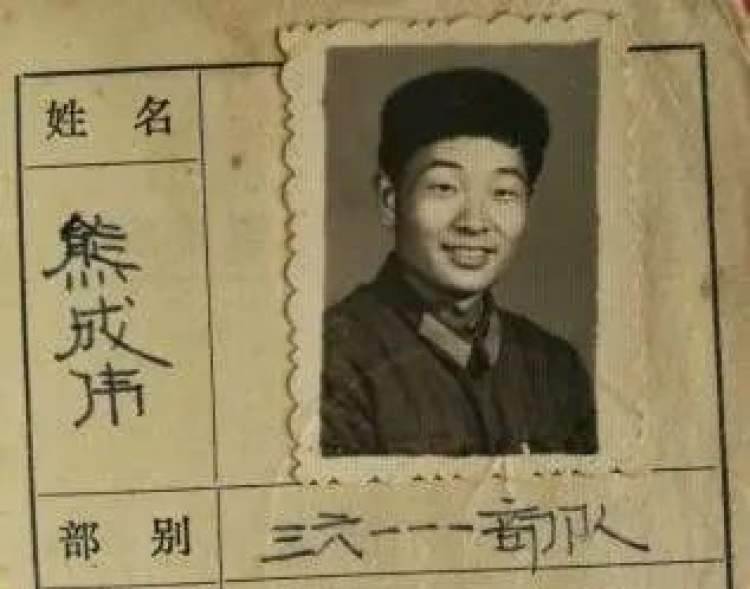 姓名
熊成伟
部别
三六一一一部队